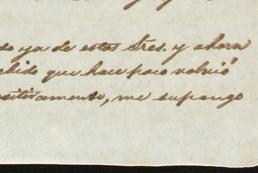 do ya de estos Sres. y ahora
bido que hace poco volvió
sitivamente, me supongo